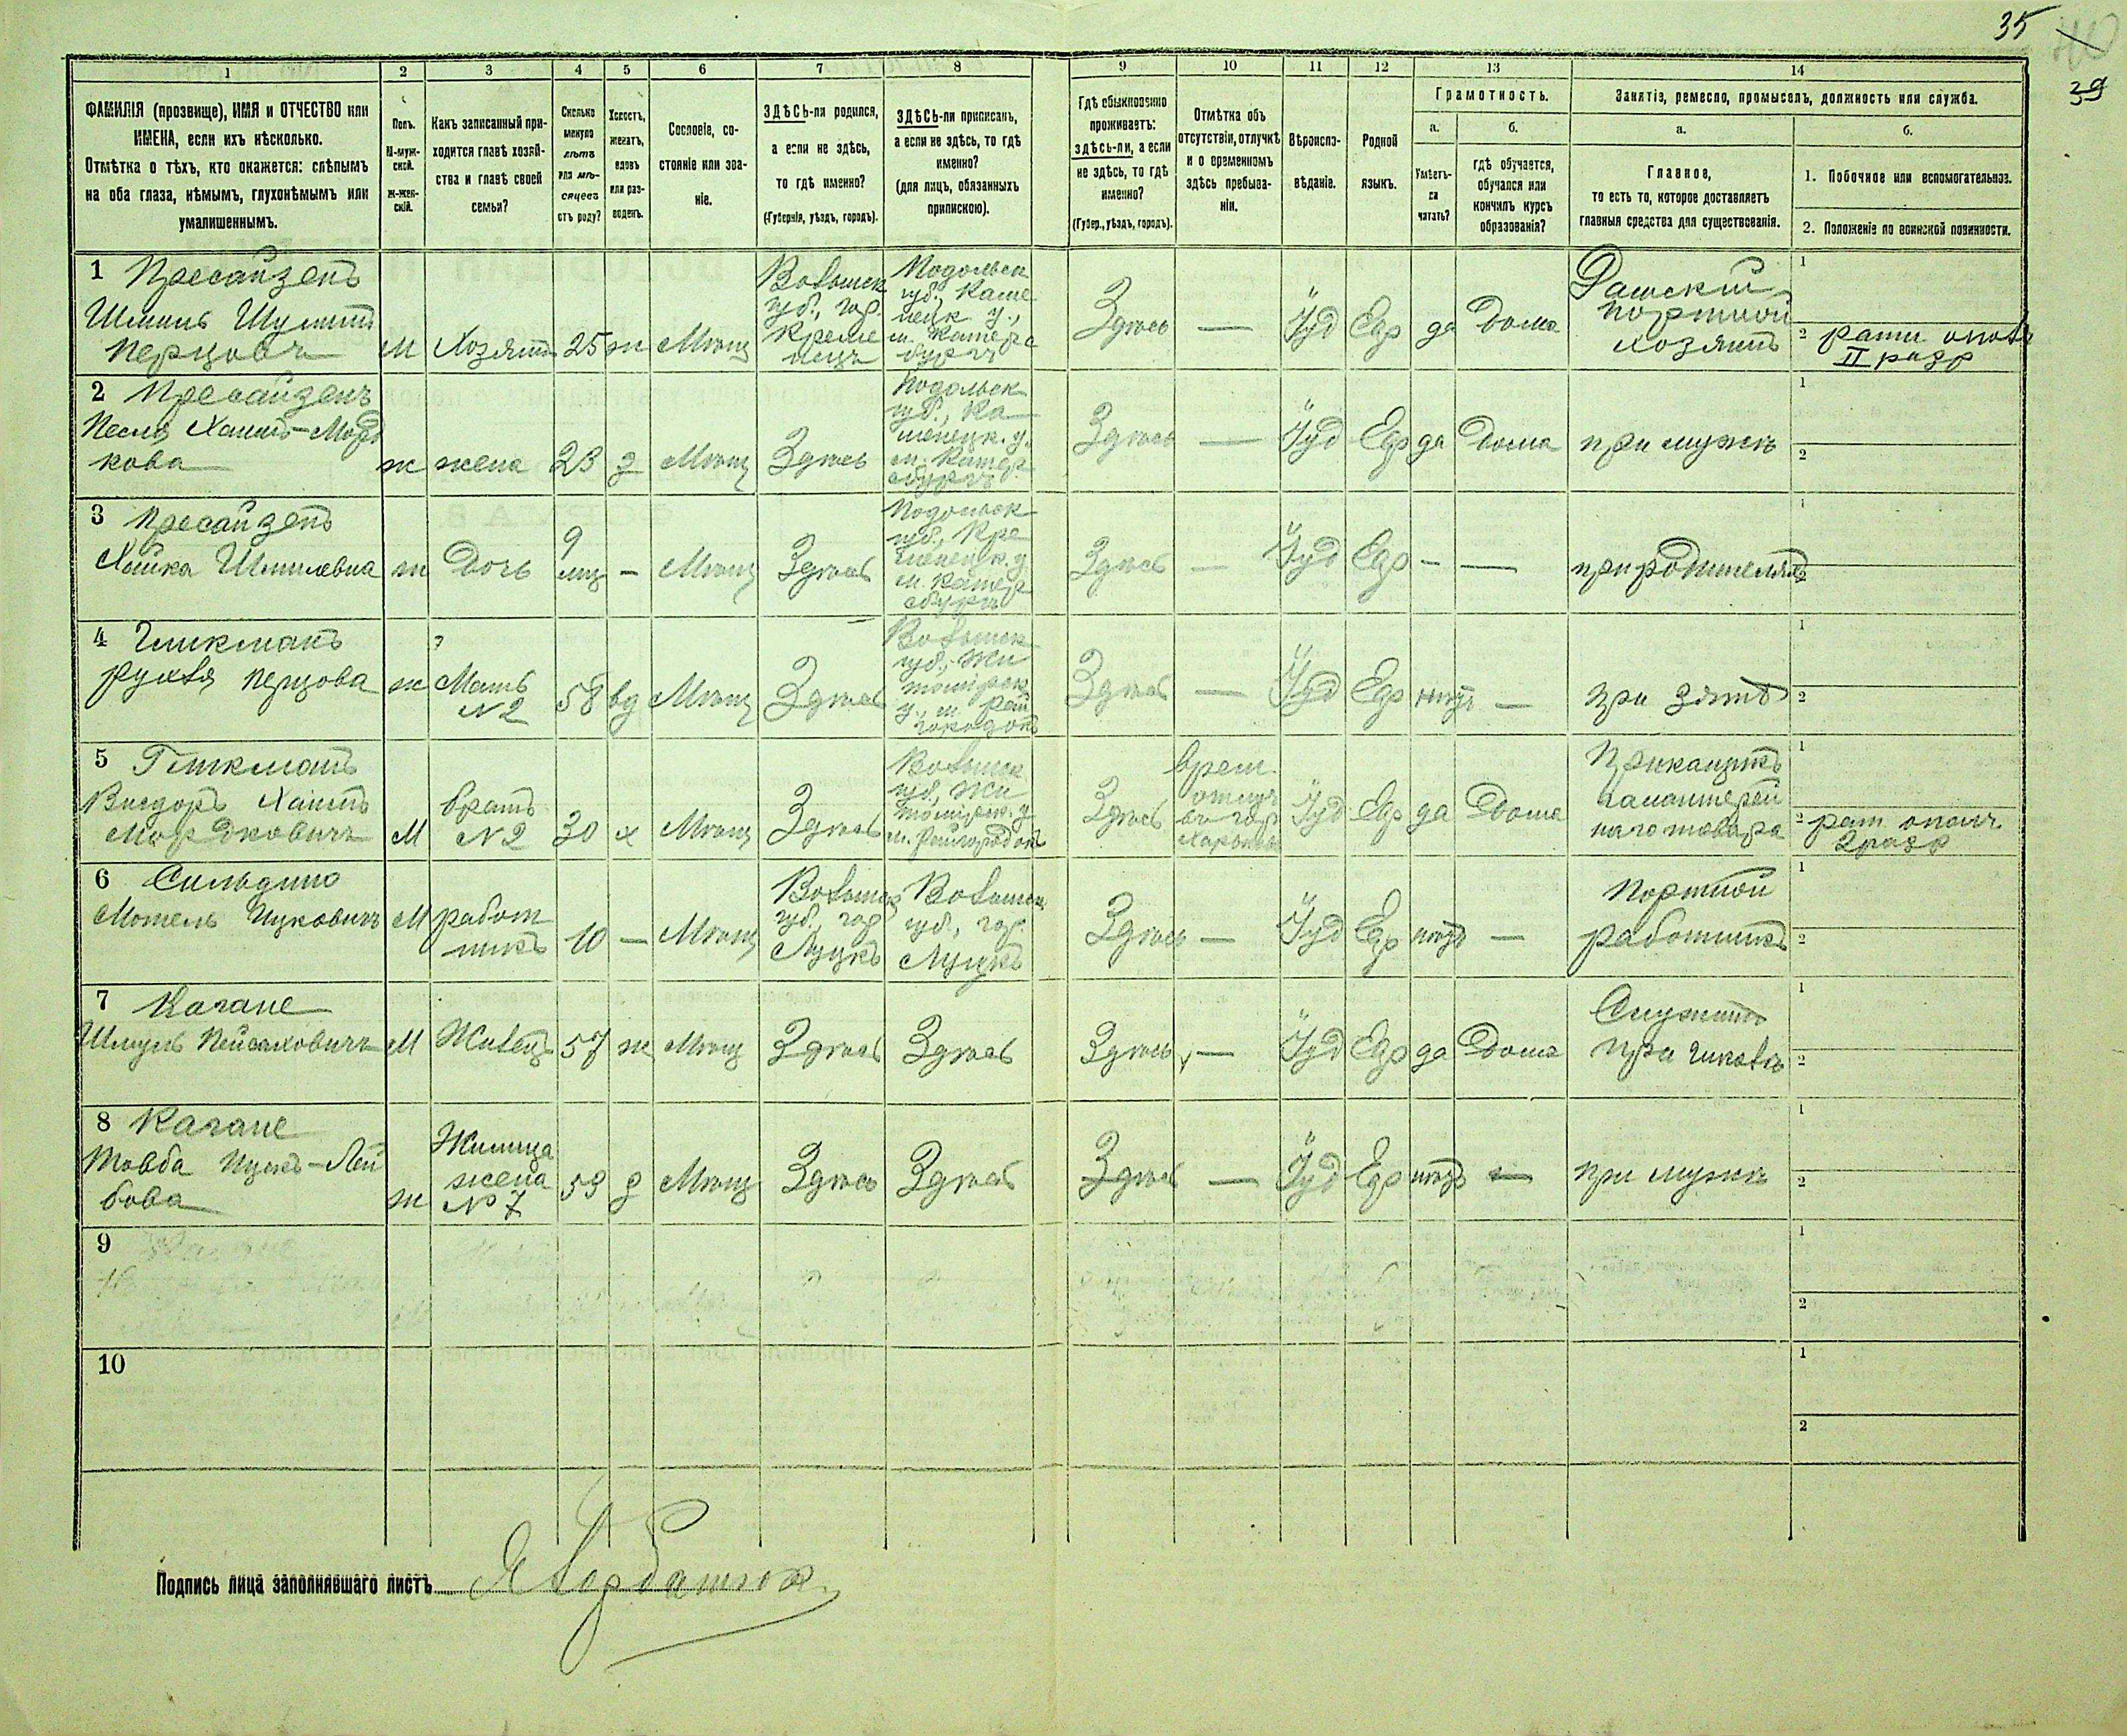 35
39
1 2 3 4 5 6 7 8 9 10 11 12 13 14
ФАМИЛІЯ (прозвище), ИМЯ и ОТЧЕСТВО или
ИМЕНА, если ихъ нѣсколько.
Отмѣтка о тѣхъ, кто окажется: слѣпымъ
на оба глаза, нѣмымъ, глухонѣмымъ или
умалишеннымъ.
Полъ.
М-муж-
ской.
Ж-жен-
скій.
Какъ записанный при-
ходится главѣ хозяй-
ства и главѣ своей
семьи?
Сколько
минуло
лѣтъ
или мѣ-
сяцевъ
отъ роду?
Холостъ,
женатъ,
вдовъ
или раз-
веденъ.
Сословіе, со-
стояніе или зва-
ніе.
ЗДѢСЬ-ли родился,
а если не здѣсь,
то гдѣ именно?
(Губернія, уѣздъ, городъ).
ЗДѢСЬ-ли приписанъ,
а если не здѣсь, то гдѣ
именно?
(для лицъ, обязанныхъ
припискою).
Гдѣ обыкновенно
проживаетъ:
ЗДѢСЬ-ли, а если
не здѣсь, то гдѣ
именно?
(Губер., уѣздъ, городъ).
Отмѣтка объ
отсутствіи, отлучкѣ
и о временномъ
здѣсь пребыва-
ніи.
Вѣроиспо-
вѣданіе.
Родной
языкъ.
Грамотность.
а.
Умѣетъ-
ли
читать?
б.
гдѣ обучается,
обучался или
кончилъ курсъ
образованія?
Занятіе, ремесло, промыселъ, должность или служба.
а.
Главное,
то есть то, которое доставляетъ
главныя средства для существованія.
б.
1. Побочное или вспомогательное.
2. Положеніе по воинской повинности.
1 Пресайзенъ
Шмиль Шулимъ
Перцовъ
М
Хозяинъ
25
ж
Мѣщ
Волынск
губ., гор.
Креме
нецъ
Подольск
губ., Каме
нецк у.,
м. Катери
бургъ
Здѣсь
—
Іуд
Евр
да
Дома
Дамский
портной
хозяинъ
1
2 ратн опол
II разр
2 Пресайзенъ
Песля Хаимъ-Морд
кова
ж
жена
23
з
Мѣщ
Здѣсь
Подольск
губ., Ка
менецк. у.
м. Катер
бургъ
Здѣсь
—
Іуд
Евр
да
Дома
при мужѣ
1
2
3 Пресайзенъ
Хайка Шмилевна
ж
Дочь
9
мц
—
Мѣщ
Здѣсь
Подольск
губ., Кре
менецк. у
м. Катер
бургъ
Здѣсь
—
Іуд
Евр
—
—
при родителяхъ
1
2
4 Гликманъ
Рухля Перцова
ж
Мать
№2
58
вд
Мѣщ
Здѣсь
Волынск
губ., Жи
томірск
у., м. Рай
городокъ
Здѣсь
—
Іуд
Евр
нѣтъ
—
при зятѣ
1
2
5 Гликманъ
Хаимъ
Мордковичъ
М
братъ
№2
30
х
Мѣщ
Здѣсь
Волынск
губ., Жи
томірск. у
м. Райгородокъ
Здѣсь
врем.
отлуч
въ гор
Харьковъ
Іуд
Евр
да
Дома
Прикащикъ
галантерей
наго товара
1
2 рат. ополч
2 разр
6 Сильдино
Мотель Ицковичъ
М
работ
никъ
10
—
Мѣщ
Волынск
губ. гор
Луцкъ
Волынск
губ., гор.
Луцкъ
Здѣсь
—
Іуд
Евр
нѣтъ
—
Портной
работникъ
1
2
7 Кагане
Шмуль Пейсаховичъ
М
Жилец
57
ж
Мѣщ
Здѣсь
Здѣсь
Здѣсь
—
Іуд
Евр
да
Дома
Служитъ
при школѣ
1
2
8 Кагане
Товба Ицко-Лей
бова
ж
Жилица
жена
№ 7
59
з
Мѣщ
Здѣсь
Здѣсь
Здѣсь
—
Іуд
Евр
нѣтъ
—
при мужѣ
1
2
9
1
2
10
1
2
Подпись лица заполнявшаго листъ